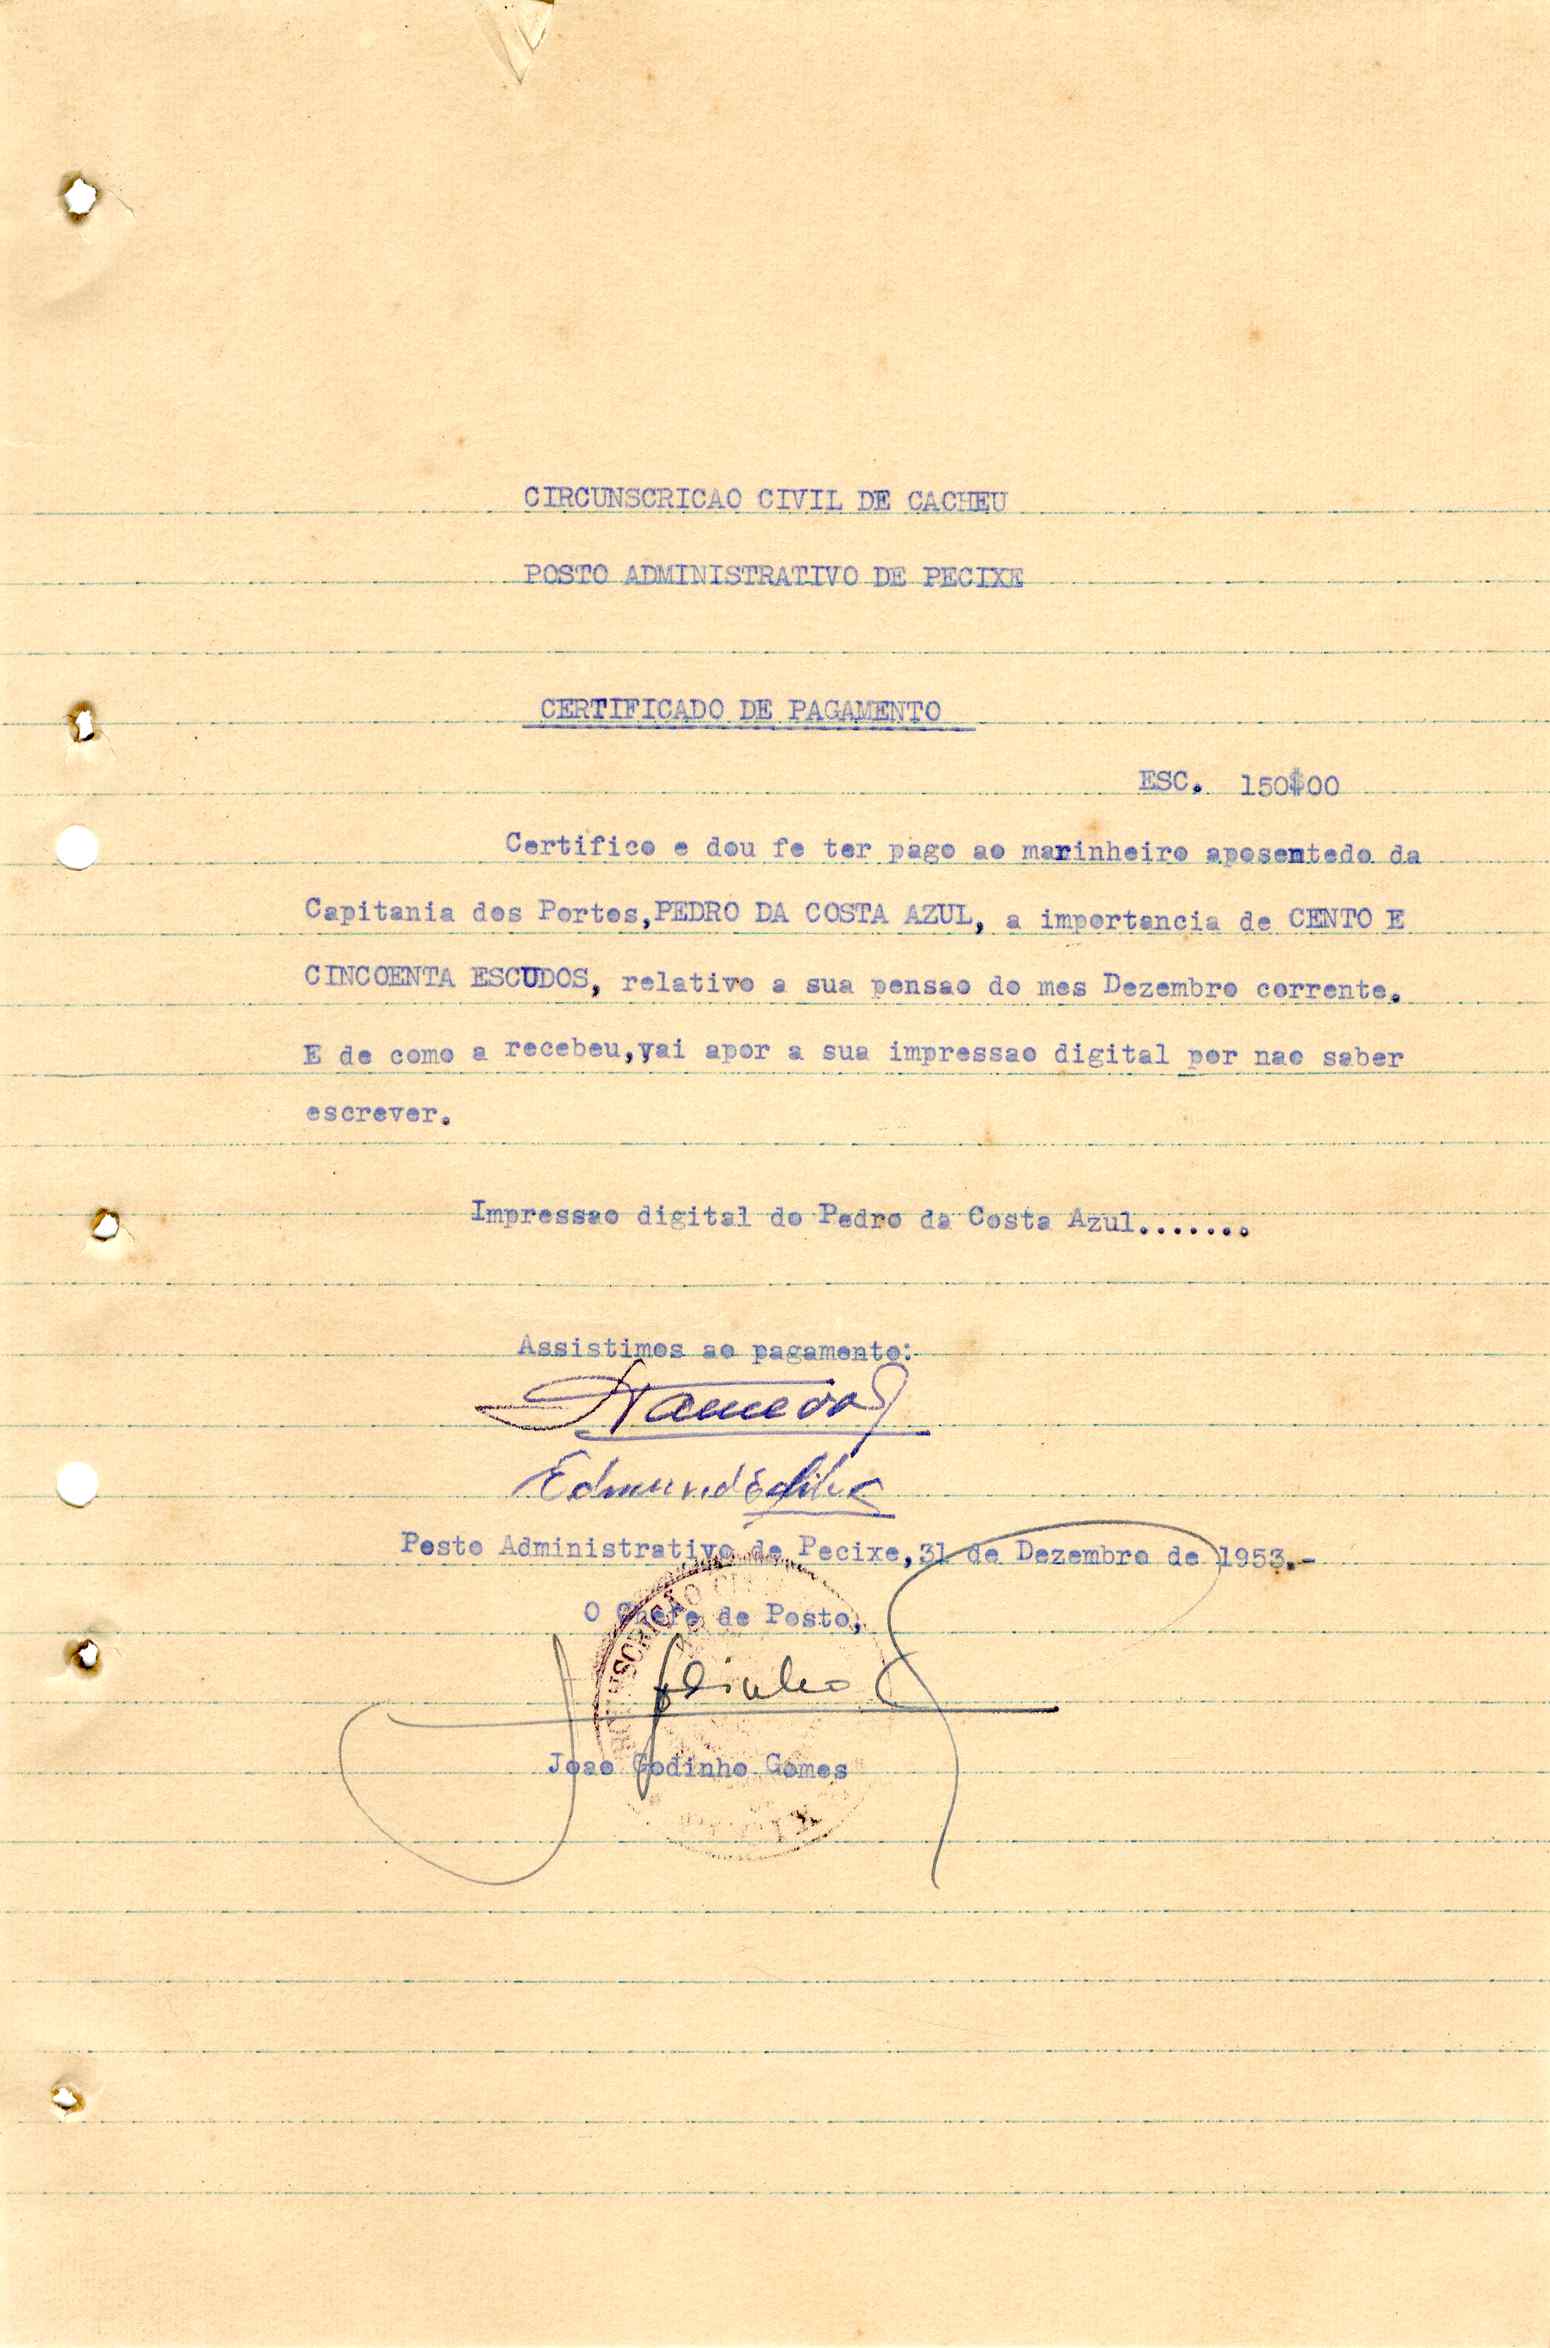 CIRCUNSCRICAO CIVIL DE CACHEU
POSTO ADMINISTRATIVO DE PECIXE
CERTIFICADO DE PAGAMENTO
ESC. 150$00
Certifico e dou fe ter pago ao marinheiro aposentado da
Capitania dos Portos,PEDRO DA COSTA AZUL, a importancia de CENTO E
CINCOENTA ESCUDOS, relativo a sua pensao do mes Dezembro corrente.
E de como a recebeu,vai apor a sua impressao digital por nao saber
escrever.
Impressao digital do Pedro da Costa Azul.......
Assistimos ao pagamento:
Edmundo Silva
Posto Administrativo de Pecixe,31 de Dezembro de 1953.-
O Chefe de Posto,
J Godinho
Joao Godinho Gomes